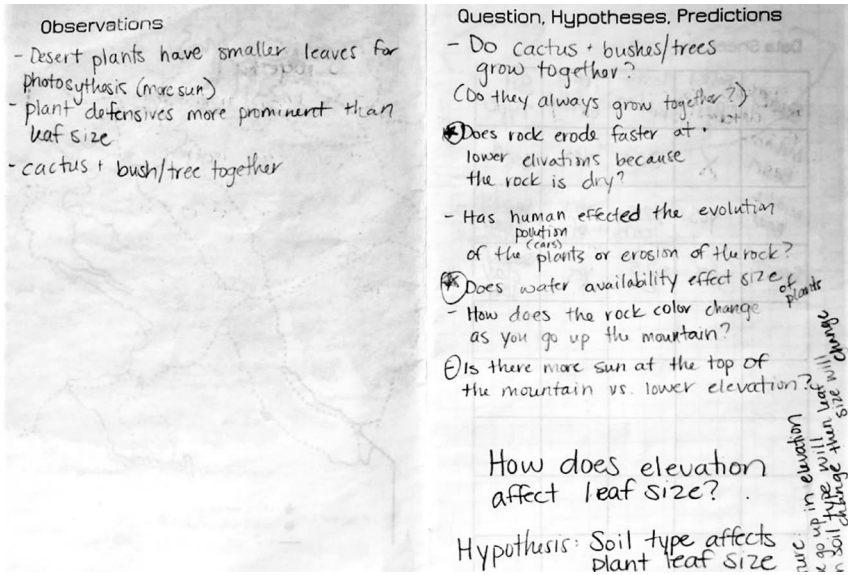 Observations
- Desert plants have smaller leaves for
photosythesis (more sun)
- plant defensives more prominent than
leaf size
- cactus + bush/tree together
Question, Hypotheses, Predictions
- Do cactus + bushes/trees
grow together?
(Do they always grow together?)
Does rock erode faster at
lower elivations because
the rock is dry?
- Has human effected the evolution
pollution
(cars)
of the plants or erosion of the rock?
Does water availability effect size of plants
- How does the rock color change
as you go up the mountain?
Is there more sun at the top of
the mountain vs. lower elevation?
How does elevation
affect leaf size?
Hypothesis: Soil type affects
plant leaf size
go up in elevation
soil type will
change then leaf
size will change